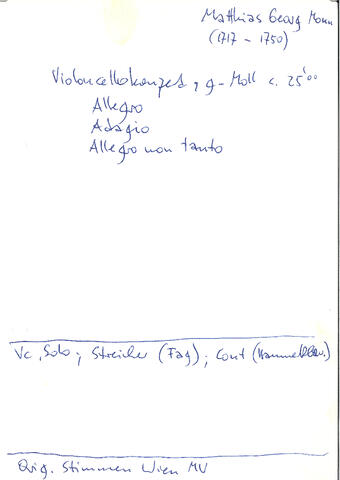 Matthias Georg Monn
(1717 - 1750)
Violoncellokonzert, g-Moll c. 25'00
Allegro
Adagio
Allegro non tanto
Vc, Solo; Streicher (Fag); Cont (Hammerklav.)
Orig. Stimmen Wien MV